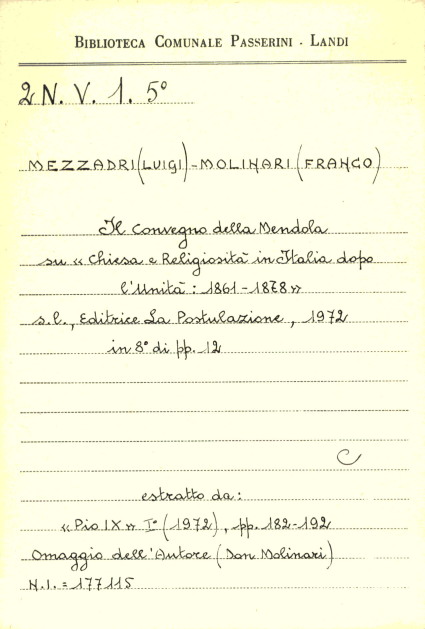 BIBLIOTECA COMUNALE PASSERINI - LANDI
2 N. V. 1. 5°
MEZZADRI (LUIGI) - MOLINARI (FRANCO)
Il Convegno della Mendola
su « Chiesa e Religiosità in Italia dopo
l'Unità : 1861-1878 »
s.l., Editrice La Postulazione, 1972
in 8° di pp. 12
C
estratto da:
« Pio IX » I° (1972), pp. 182-192
Omaggio dell'Autore (Don Molinari)
N.I. = 177115